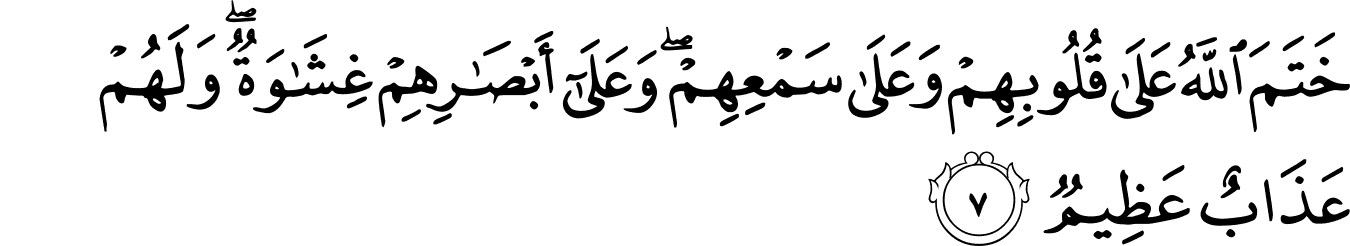 خَتَمَ ٱللَّهُ عَلَىٰ قُلُوبِهِمْ وَعَلَىٰ سَمْعِهِمْ ۖ وَعَلَىٰٓ أَبْصَـٰرِهِمْ غِشَـٰوَةٌ ۖ وَلَهُمْ
عَذَابٌ عَظِيمٌ ٧